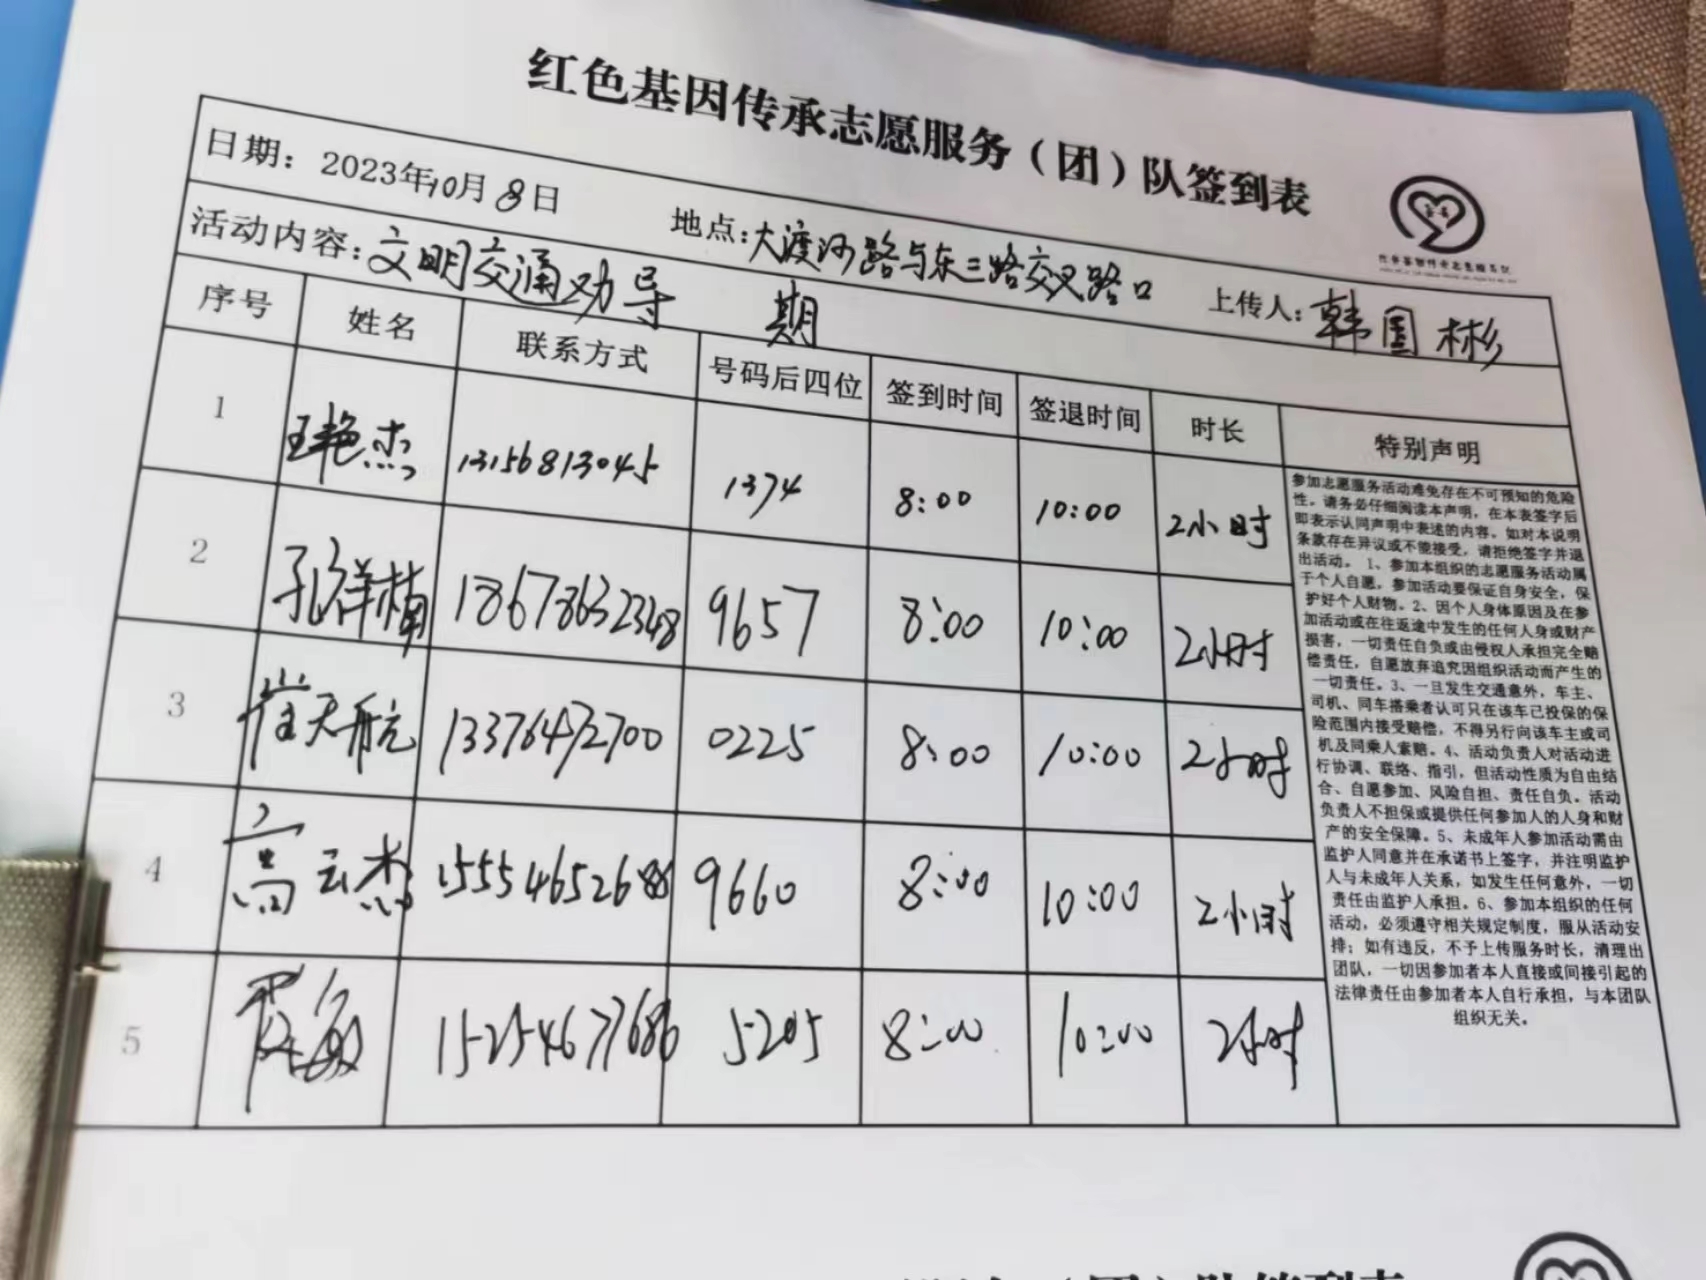 红色基因传承志愿服务（团）队签到表
日期：2023年10月8日 地点：大渡河路与东三路交叉路口 上传人：韩国彬
活动内容：文明交通劝导 期
序号 姓名 联系方式 号码后四位 签到时间 签退时间 时长 特别声明
1 王艳杰 13156813045 1374 8:00 10:00 2小时
2 孔祥楠 18678632348 9657 8:00 10:00 2小时
3 崔天航 13376472700 0225 8:00 10:00 2小时
4 高云杰 15554652688 9660 8:00 10:00 2小时
5 敏 15254677686 5205 8:00 10:00 2小时
参加志愿服务活动难免存在不可预知的危险
性。请务必仔细阅读本声明，在本表签字后
即表示认同声明中表述的内容。如对本说明
条款存在异议或不能接受，请拒绝签字并退
出活动。 1、参加本组织的志愿服务活动属
于个人自愿，参加活动要保证自身安全，保
护好个人财物。2、因个人身体原因及在参
加活动或在往返途中发生的任何人身或财产
损害，一切责任自负或由侵权人承担完全赔
偿责任，自愿放弃追究因组织活动而产生的
一切责任。3、一旦发生交通意外，车主、
司机、同车搭乘者认可只在该车已投保的保
险范围内接受赔偿，不得另行向该车主或司
机及同乘人索赔。4、活动负责人对活动进
行协调、联络、指引，但活动性质为自由结
合、自愿参加、风险自担、责任自负。活动
负责人不担保或提供任何参加人的人身和财
产的安全保障。5、未成年人参加活动需由
监护人同意并在承诺书上签字，并注明监护
人与未成年人关系，如发生任何意外，一切
责任由监护人承担。6、参加本组织的任何
活动，必须遵守相关规定制度，服从活动安
排；如有违反，不予上传服务时长，清理出
团队，一切因参加者本人直接或间接引起的
法律责任由参加者本人自行承担，与本团队
组织无关。